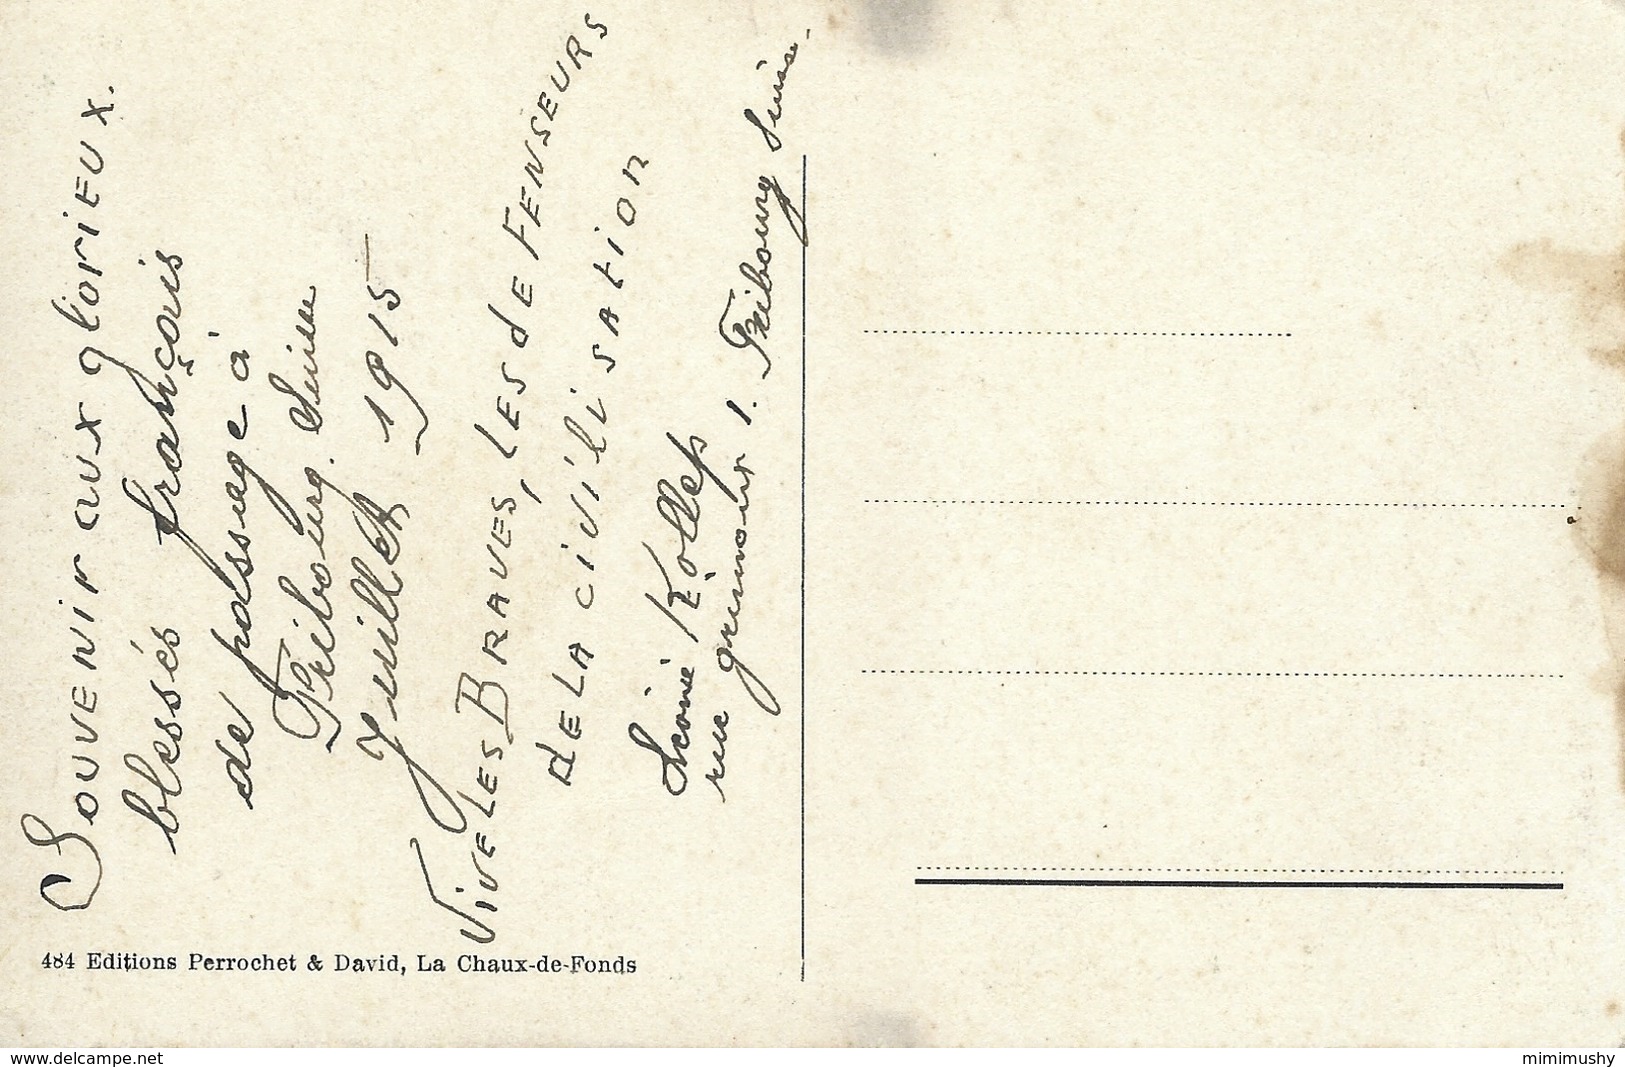 Souvenir aux glorieux.
blessés français
de passage à
Fribourg. Suisse
Juillet 1915
Vive les Braves, les defenseurs
de la civilisation
Léonie Kolley
rue grimoux 1. Fribourg Suisse.
484 Editions Perrochet & David, La Chaux-de-Fonds
www.delcampe.net
mimimushy